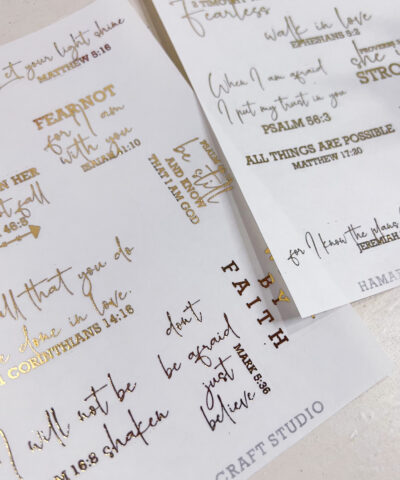 Let your light shine
MATTHEW 5:16
FEAR NOT
for I am
with you
ISAIAH 41:10
IN HER
not fall
46:5
be still
AND KNOW
THAT I AM GOD
all that you do
done in love.
1 CORINTHIANS 14:16
I will not be
shaken
16:8
don't
be afraid
just
believe
MARK 5:36
BY
FAITH
CRAFT STUDIO
2 TIMOTHY
Fearless
walk in love
EPHESIANS 5:2
PROVERBS
she
STRO
When I am afraid
I put my trust in you
PSALM 56:3
ALL THINGS ARE POSSIBLE
MATTHEW 17:20
for I know the plans
JEREMIAH
HAMA